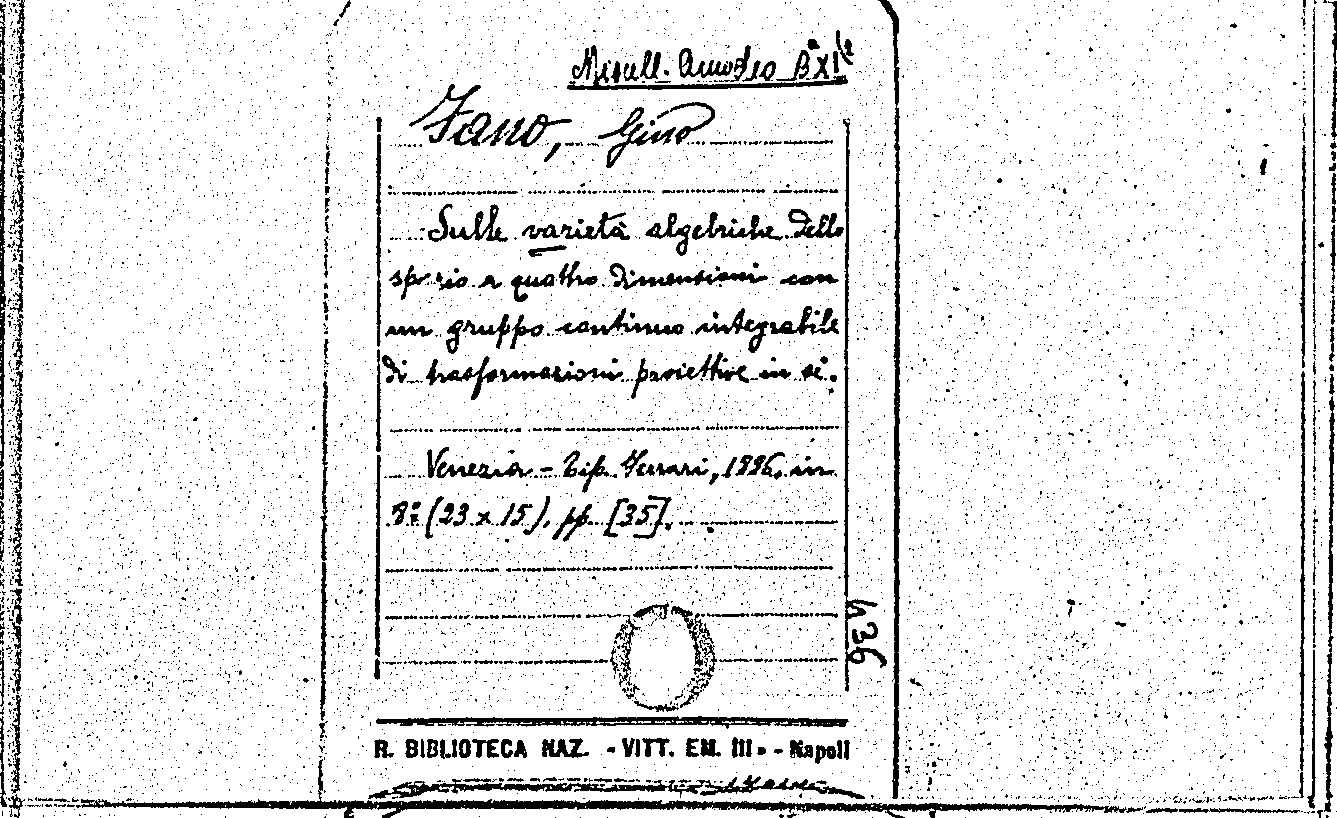 Miscell. Amodeo Bª XI/2
Fano, Gino
Sulle varietà algebriche dello
spazio a quattro dimensioni con
un gruppo continuo integrabile
di trasformazioni proiettive in sè.
Venezia - Tip. Ferrari, 1896, in
8º (23 x 15). pp. [35].
436
R. BIBLIOTECA NAZ. - VITT. EM. III » - Napoli